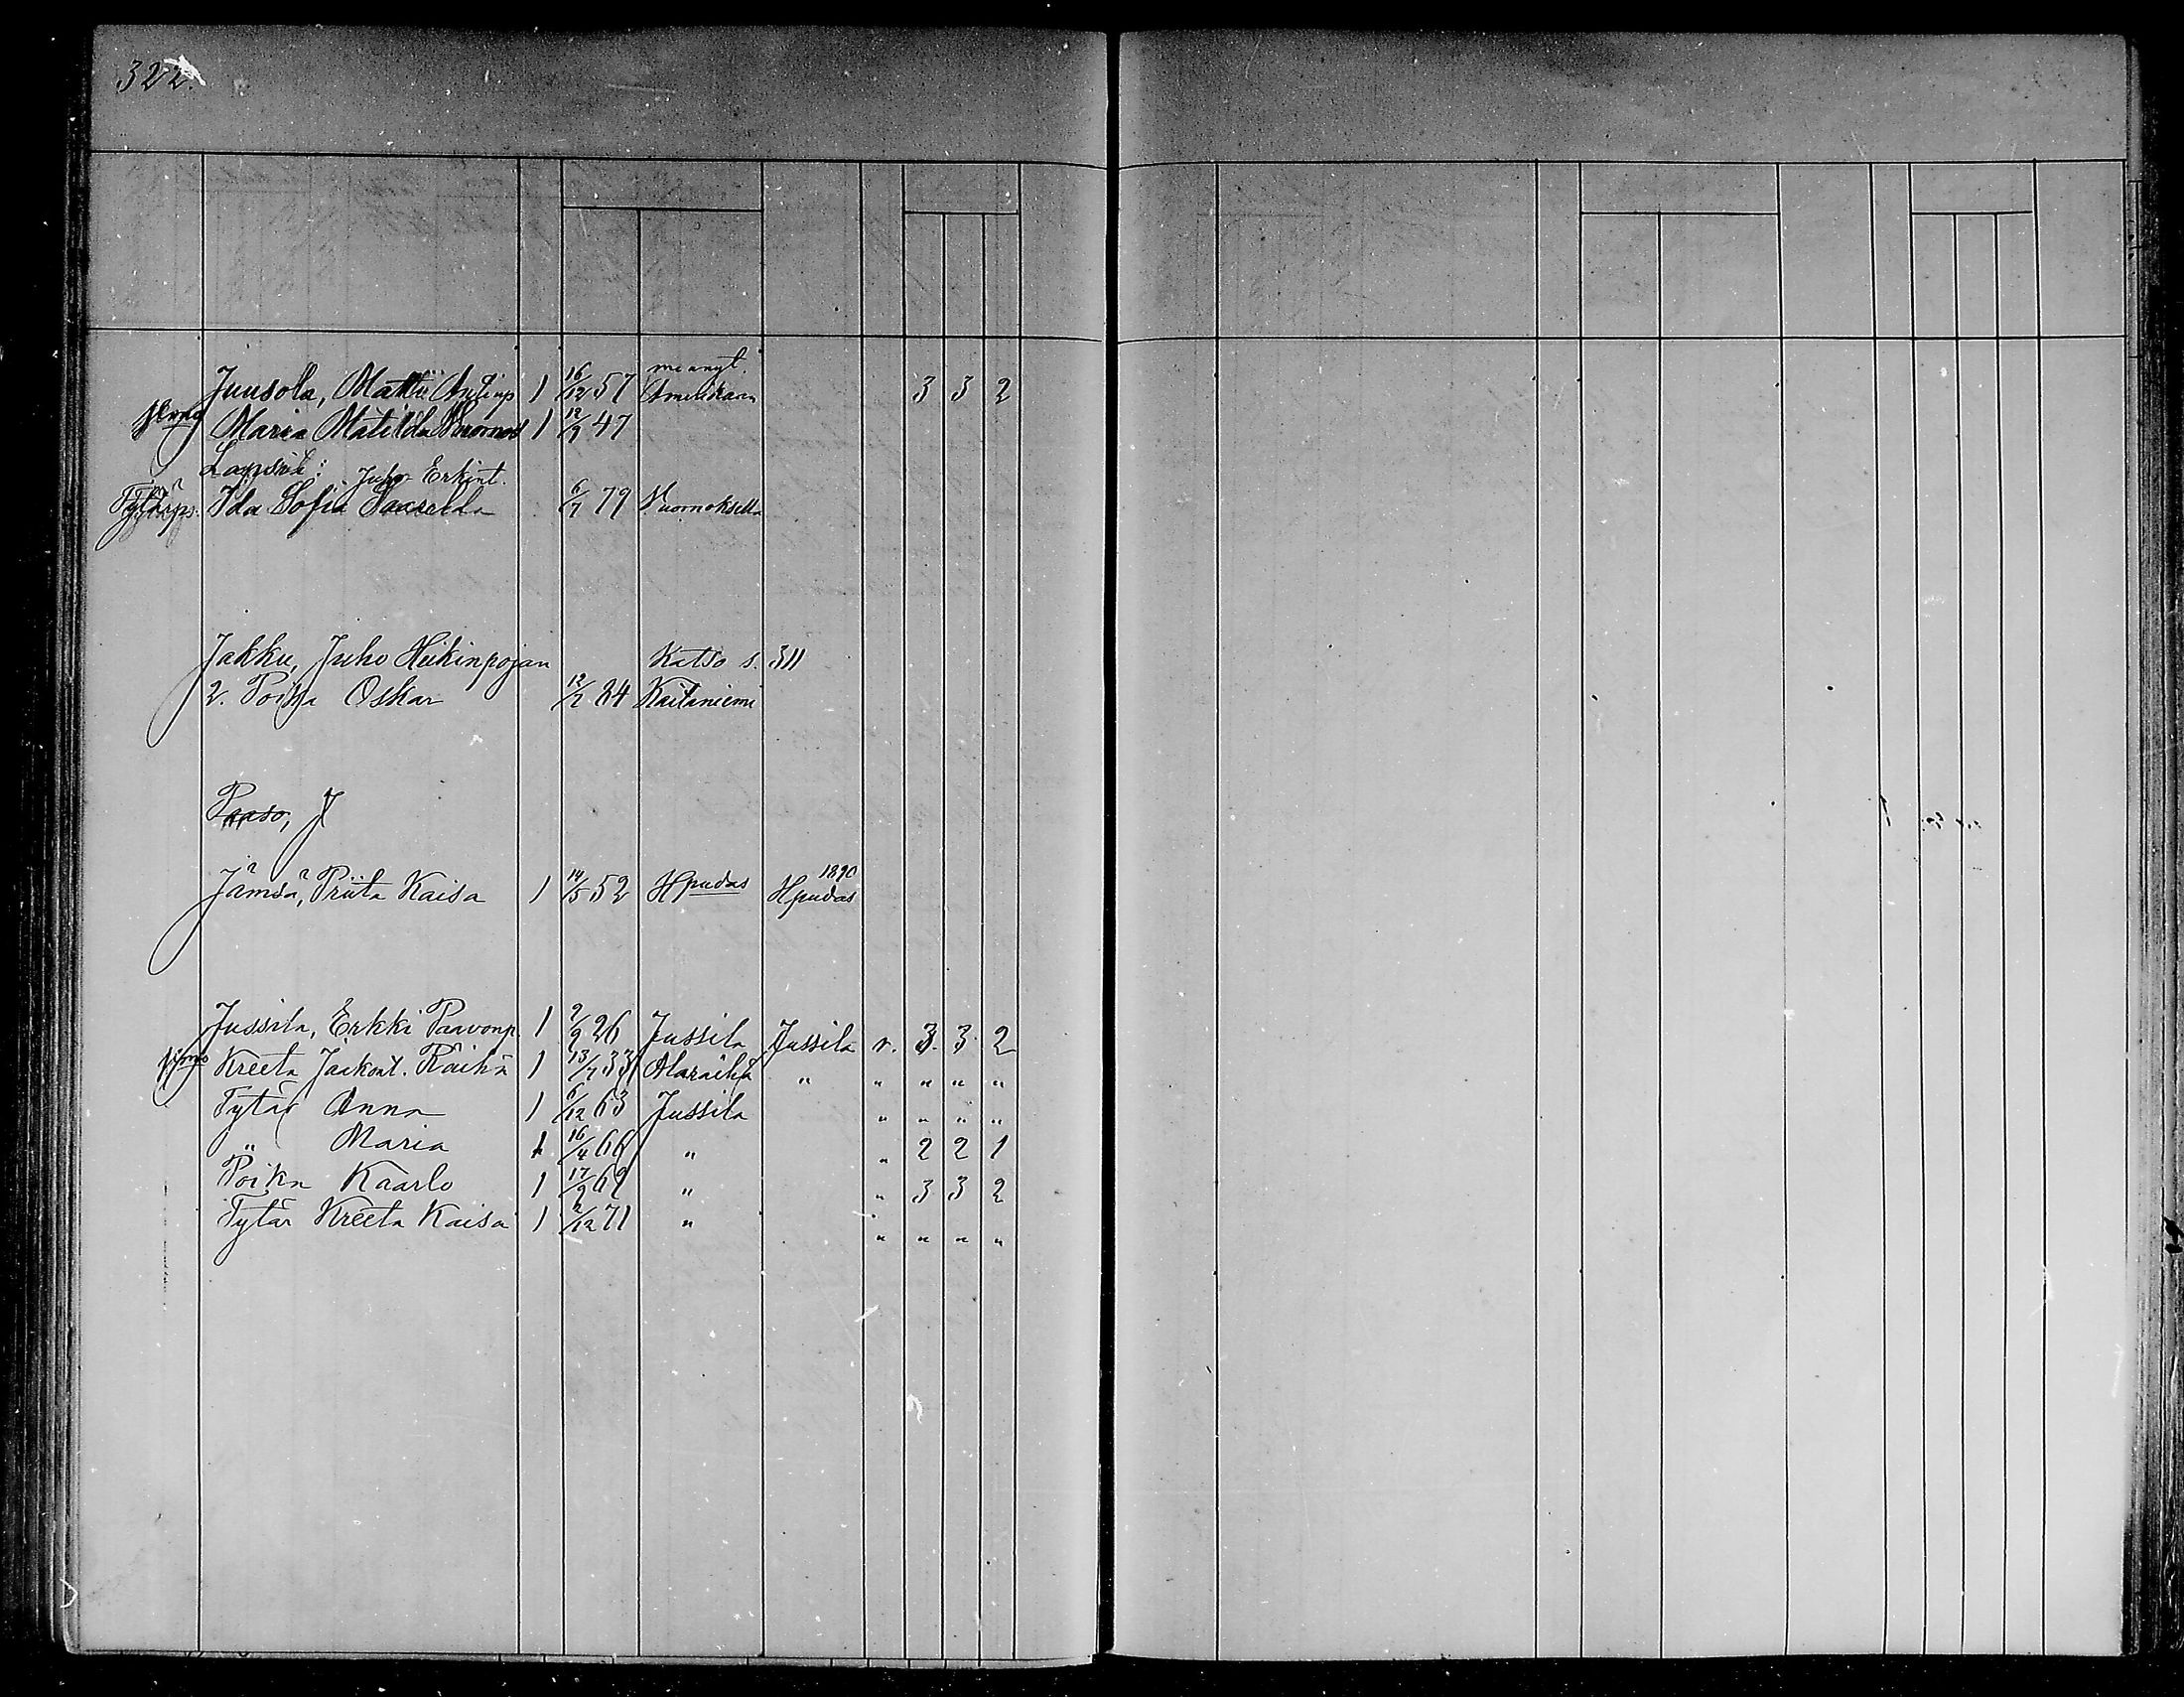 322.
mennyt
Juusola, Matti Antinp 1 16/12 57 Amerikaan 3 3 2
Maria Matilda 1 12/9 47
Lapsia:
Juho Erkint.
Tytärps. Ida Sofia Saarela 6/7 79 Vuornoksella
Jakku, Juho Heikinpojan Katso s. 311
2. Poika Oskar 12/7 84 Kaitaniemi
Paaso, J
1890
Jämsä, Priita Kaisa 1 14/5 52 Hpudas Hpudas
Jussila, Erkki Paavonp. 1 2/9 26 Jussila Jussila r. 3. 3. 2
Kreeta Jaakont. Räihä 1 13/7 33 Alaräihä " " " " "
Tytär Anna 1 6/12 63 Jussila " " " "
" Maria 1 16/4 66 " " 2 2 1
Poika Kaarlo 1 17/9 69 " " 3 3 2
Tytär Kreeta Kaisa 1 2/12 71 " " " " "